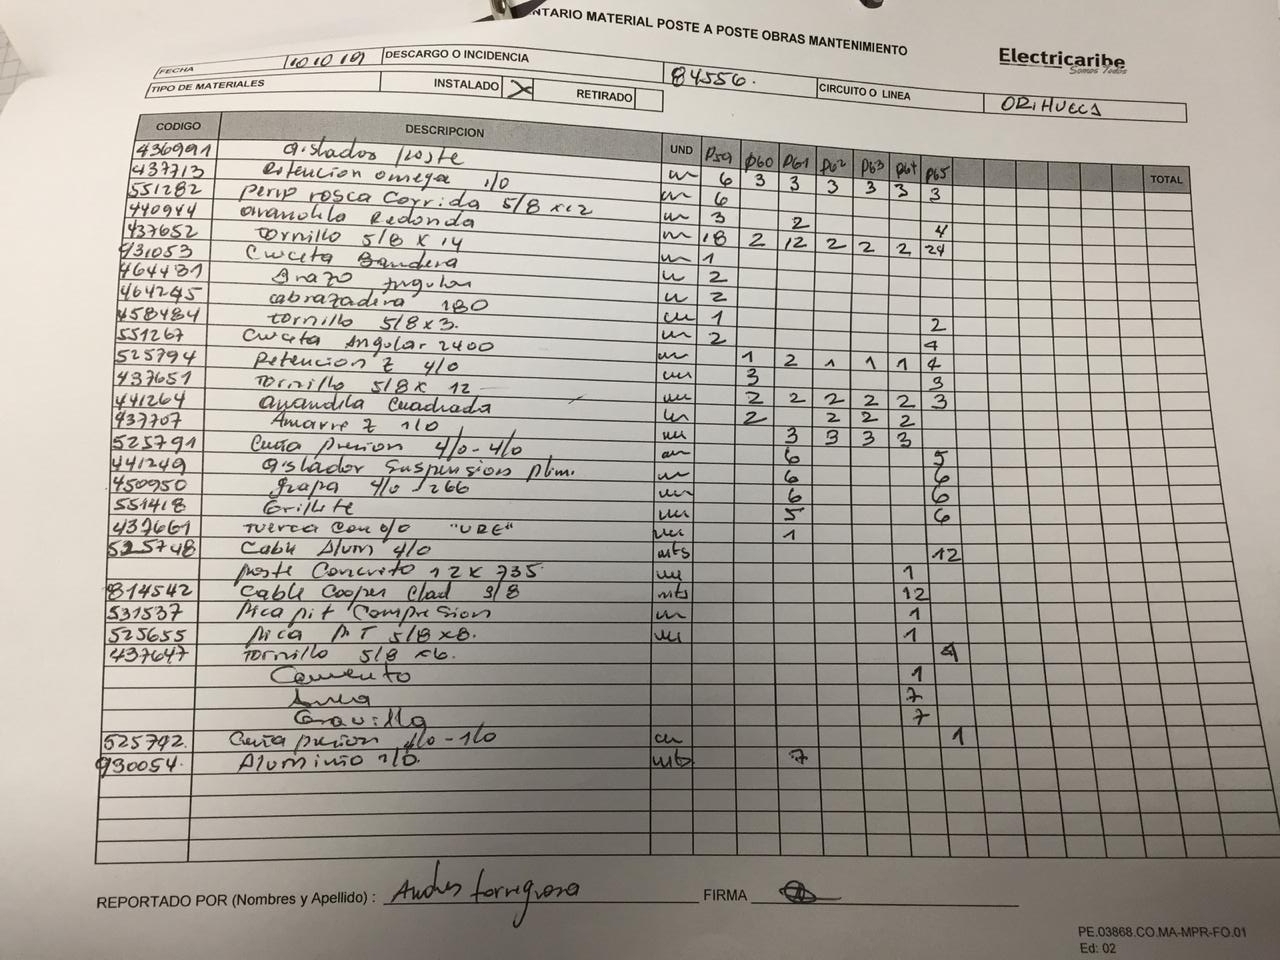 NTARIO MATERIAL POSTE A POSTE OBRAS MANTENIMIENTO
Electricaribe
Somos Todos
FECHA 101019 DESCARGO O INCIDENCIA 84556. CIRCUITO O LINEA ORIHUECA
TIPO DE MATERIALES INSTALADO X RETIRADO
CODIGO DESCRIPCION UND P59 P60 P61 P62 P63 P64 P65 TOTAL
436991 aislador poste un 6 3 3 3 3 3 3
437713 Retencion omega 1/0 un 6
551282 perno rosca Corrida 5/8 x12 un 3 2 4
440944 arandela Redonda un 18 2 12 2 2 2 24
437652 tornillo 5/8 x 14 un 1
931053 Cruceta Bandera un 2
464431 Brazo Angular un 2
464245 abrazadera 180 un 1 2
458484 tornillo 5/8x3. un 2 4
551267 Cruceta Angular 2400 un 1 2 1 1 1 4
525794 Retencion Z 4/0 un 3 3
437651 tornillo 5/8x 12 un 2 2 2 2 2 3
441264 arandela Cuadrada un 2 2 2 2
437707 Amarre Z 1/0 un 3 3 3 3
525791 Cuña presion 4/0-4/0 un 6 5
441249 aislador Suspension plim. un 6 6
450950 grapa 4/0 266 un 6 6
551418 Grillete un 5 6
437661 tuerca con o/o "URE" un 1
525748 Cable Alum 4/0 mts 12
poste Concreto 12x 735 un 1
814542 Cable Cooper Clad 3/8 mts 12
531537 Pica pit Compresion un 1
525655 pica P.T 5/8 x8. un 1
437647 tornillo 5/8 x6. 4
Cemento 1
Arena 7
Gravilla 7
525792. Cuña presion 4/0-1/0 un 1
930054. Aluminio 1/0. mts 7
REPORTADO POR (Nombres y Apellido) : Andres torregrosa FIRMA
PE.03868.CO.MA-MPR-FO.01
Ed: 02